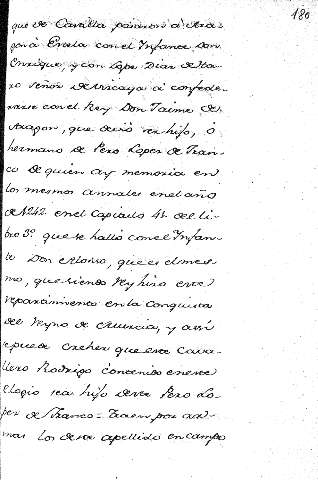 180
que de Castilla pasaron à Ara-
gon à Cuela con el Infante Don
Enrique, y con Lope Diaz de Ha-
ro Señor de Vizcaya à confede-
rarse con el Rey Don Jaime de
Aragon, que deviò ser hijo, ò
hermano de Pero Lopez de Fran-
co de quien ay memoria en
los mesmos annales en el año
de 1242 en el Capitulo 41 del li-
bro 3º que se hallò con el Infan-
te Don Alonso, que es el mes-
mo, que siendo Rey hizo este
repartimiento en la Conquista
del Reyno de Murcia, y assi
se puede creher que este Cava-
llero Rodrigo contenido en este
Elogio sea hijo deste Pero Lo-
pez de Franco = Traen por ar-
mas los deste apellido en campo